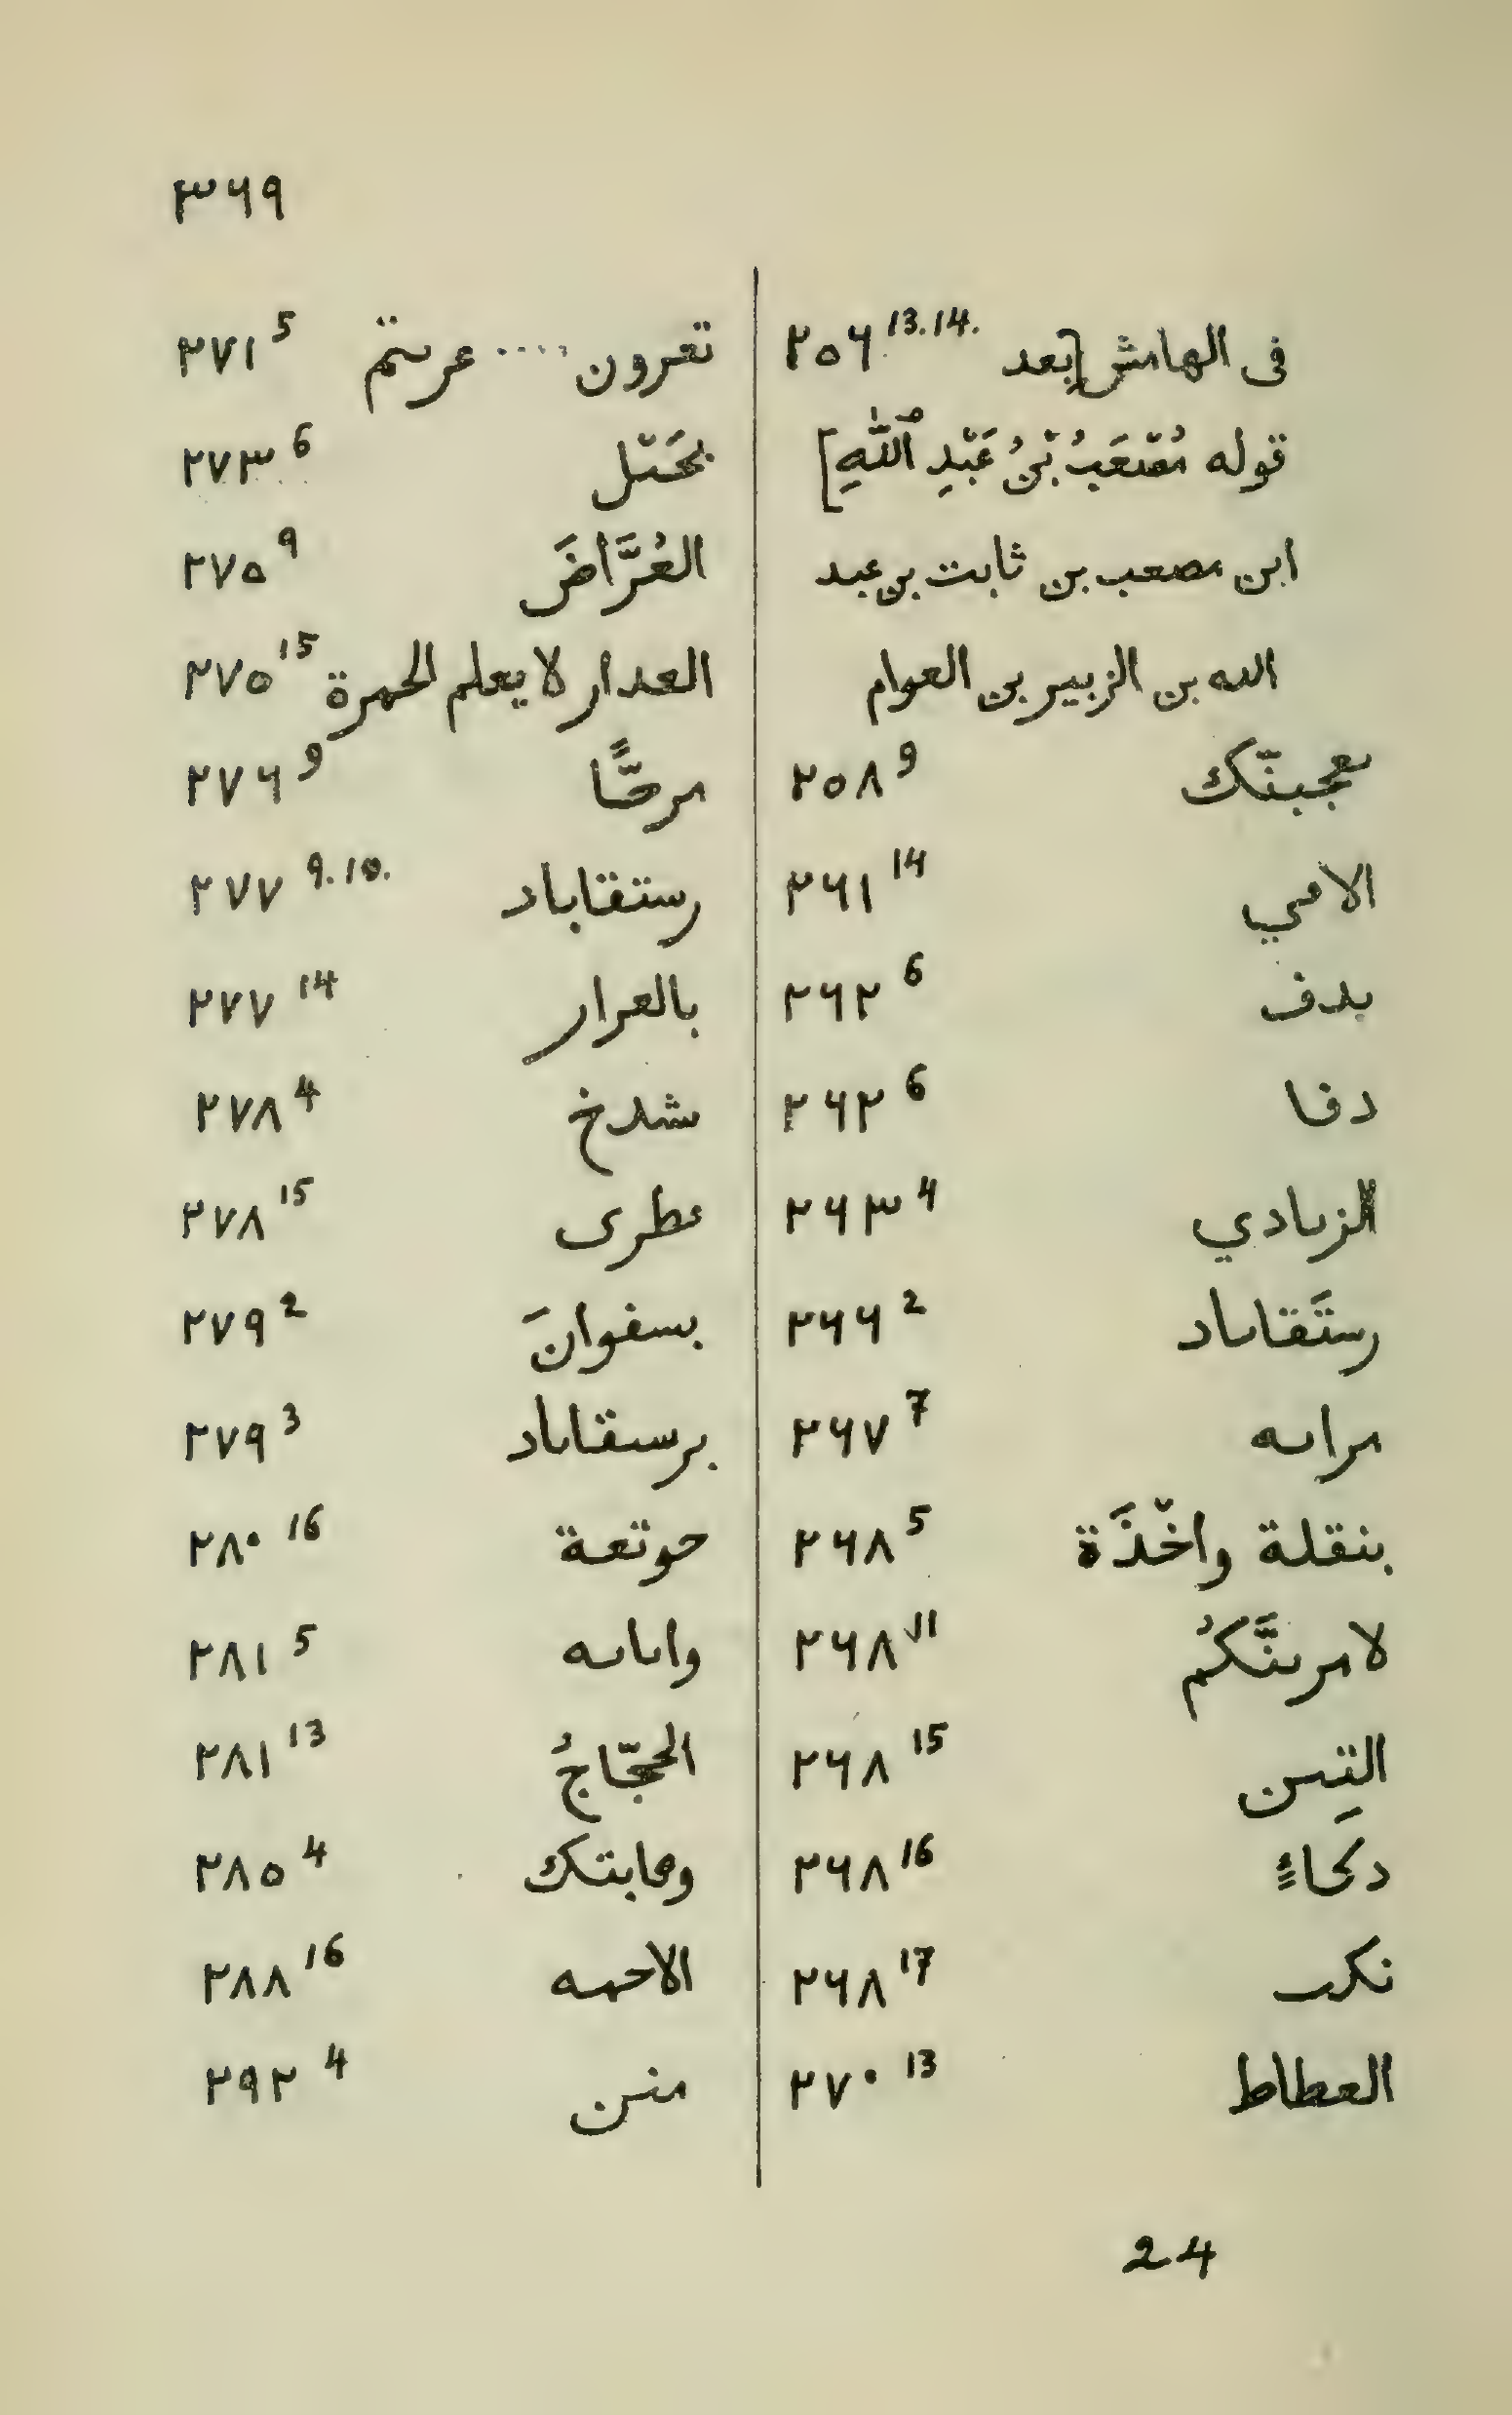 ٣٦٩
فى الهامش [بعد ٢٥٦ 13.14.
قوله مُصْعَبُ بْنُ عَبْدِ ٱللّٰهِ]
ابن مصعب بن ثابت بن عبد
الله بن الزبير بن العوام
ٮعجبنّك ٢٥٨ 9
الامي ٢٦١ 14
ٮدف ٢٦٢ 6
دفا ٢٦٢ 6
الزٮادي ٢٦٣ 4
رستَقاٮاد ٢٦٦ 2
مراٮه ٢٦٧ 7
بنقلة واخْذَة ٢٦٨ 5
لامرٮنَّكُم ٢٦٨ 11
٢٦٨ 15
دكحاءٍ ٢٦٨ 16
نكرٮ ٢٦٨ 17
العطاط ٢٧٠ 13
تعرون .... عرٮتم ٢٧١ 5
٢٧٣ 6
العُرَّاضَ ٢٧٥ 9
العدار لا يعلم الحمرة ٢٧٥ 15
مرحًّا ٢٧٦ 9
رستقاباد ٢٧٧ 9.10.
بالعرار ٢٧٧ 14
شدخ ٢٧٨ 4
عطرى ٢٧٨ 15
بسفوانَ ٢٧٩ 2
برسٮقاٮاد ٢٧٩ 3
حوتعة ٢٨٠ 16
واٮاٮه ٢٨١ 5
الحجّاجُ ٢٨١ 13
وحابتك ٢٨٥ 4
الاحمه ٢٨٨ 16
٢٩٢ 4
24